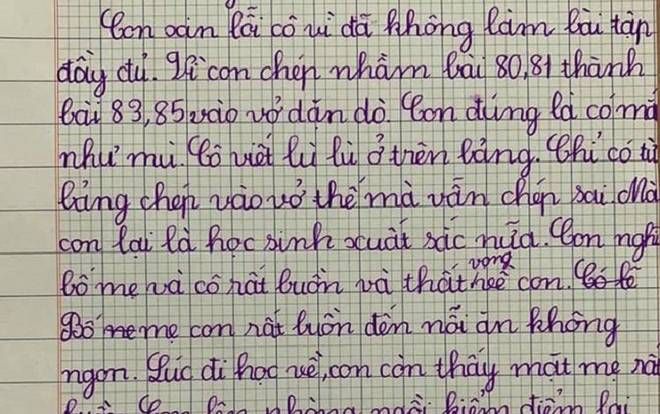 Con xin lỗi cô vì đã không làm bài tập
đầy đủ. Vì con chép nhầm bài 80,81 thành
bài 83,85 vào vở dặn dò. Con đúng là có mắ
như mù. Cô viết lù lù ở trên bảng. Chỉ có từ
bảng chép vào vở thế mà vẫn chép sai. Mà
con lại là học sinh xuất sắc nữa. Con nghĩ
bố mẹ và cô rất buồn và thất vọng về con. Có lẽ
Bố mẹ con rất buồn đến nỗi ăn không
ngon. Lúc đi học về, con còn thấy mặt mẹ rấ
ngồi kiểm điểm lại